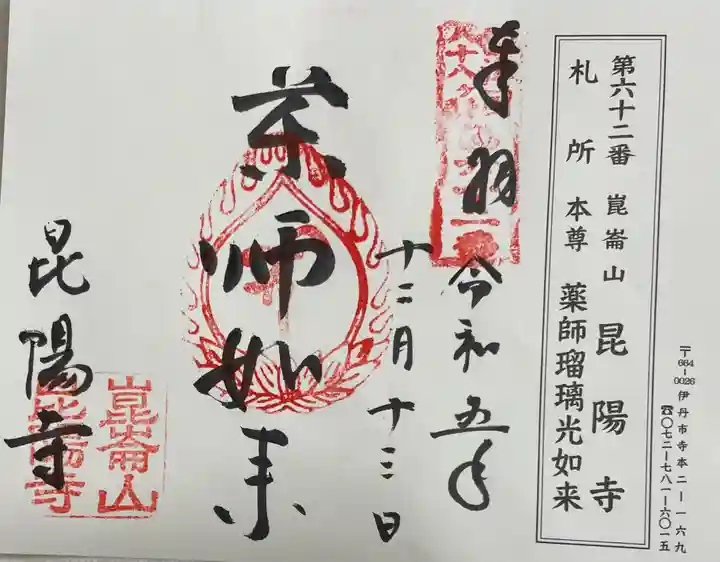 第六十二番 崑崙山 昆陽寺
札所 本尊 薬師瑠璃光如来
〒664-0026 伊丹市寺本二-一六九
☎〇七二-七八一-六〇一五
奉拝 令和五年
十二月十三日
薬師如来
昆陽寺
崑崙山
昆陽寺